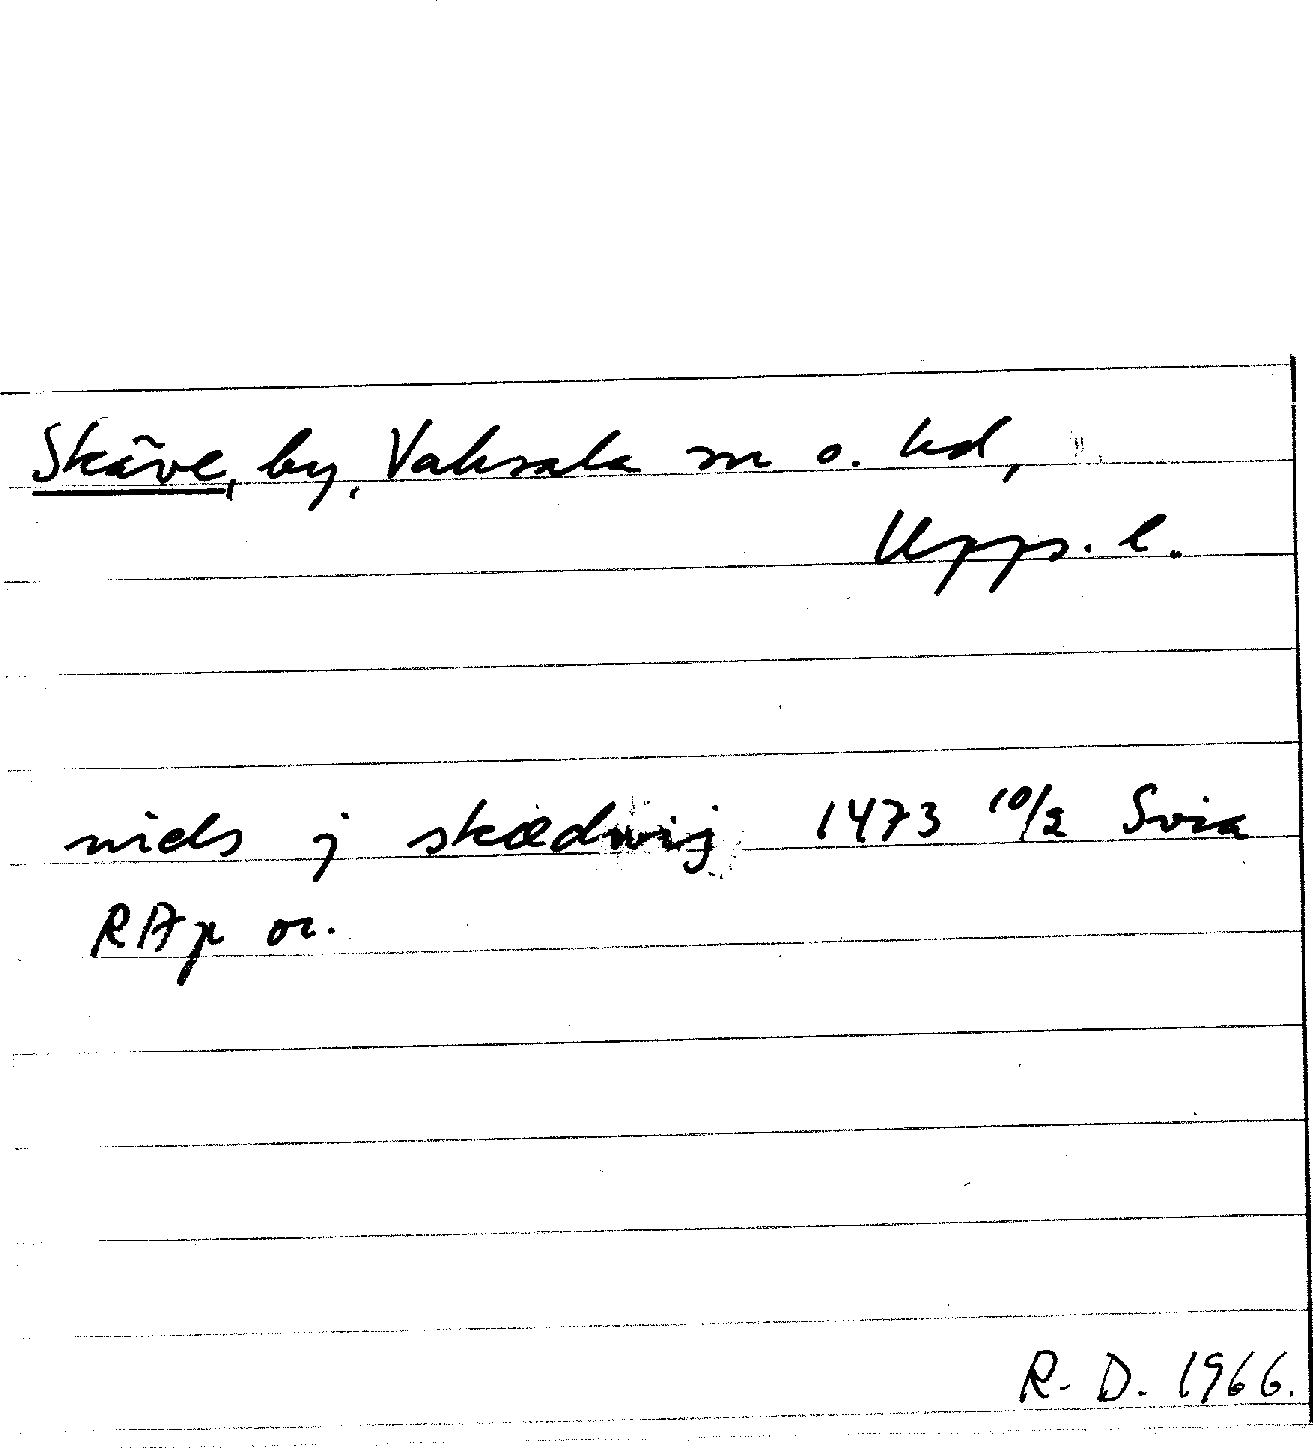 Skäve, by, Vaksala sn o. hd,
Upps. l.
niels j skædwij 1473 10/2 Svia
RAp or.
R. D. 1966.